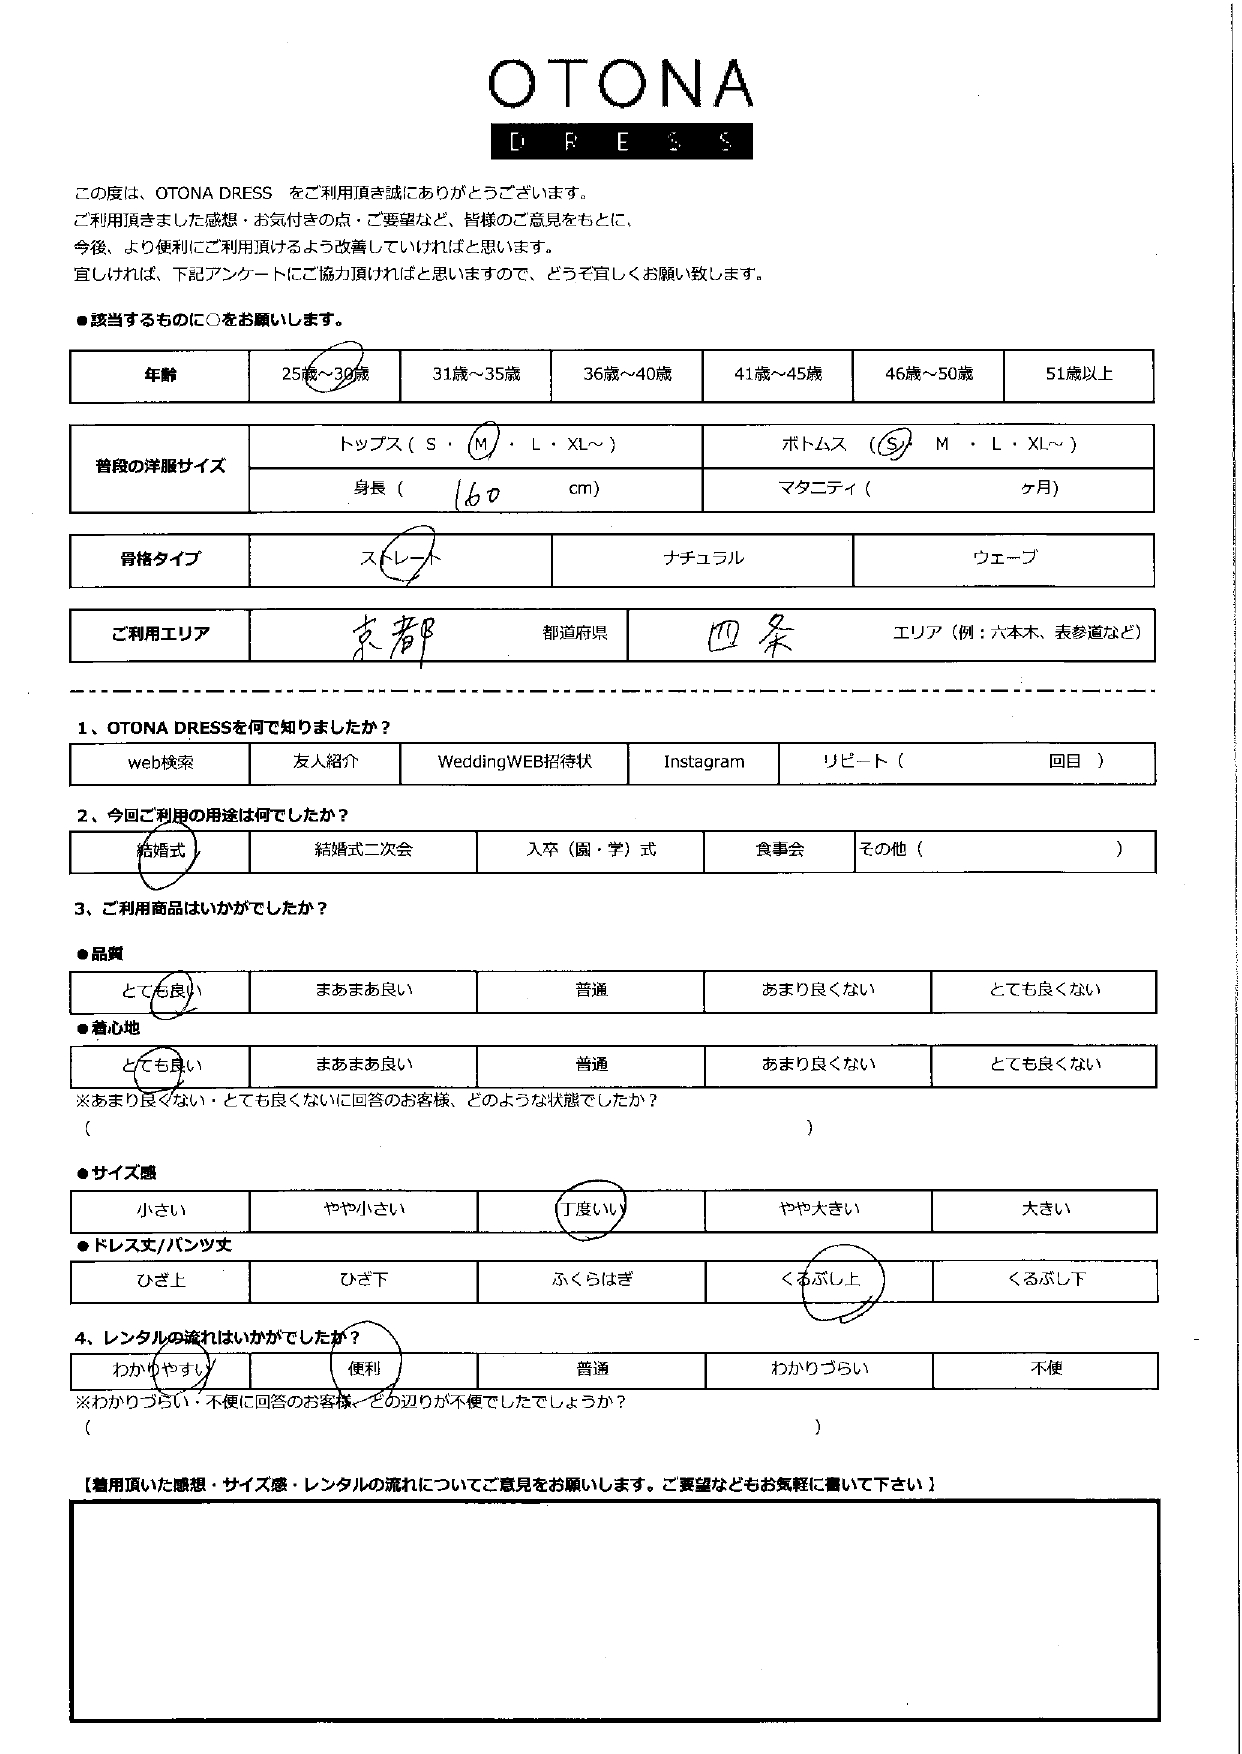 OTONA
DRESS
この度は、OTONA DRESS をご利用頂き誠にありがとうございます。
ご利用頂きました感想・お気付きの点・ご要望など、皆様のご意見をもとに、
今後、より便利にご利用頂けるよう改善していければと思います。
宜しければ、下記アンケートにご協力頂ければと思いますので、どうぞ宜しくお願い致します。
●該当するものに○をお願いします。
年齢 25歳～30歳 31歳～35歳 36歳～40歳 41歳～45歳 46歳～50歳 51歳以上
普段の洋服サイズ トップス ( S ・ M ・ L ・ XL～ ) ボトムス ( S ・ M ・ L ・ XL～ )
身長 ( 160 cm) マタニティ ( ヶ月)
骨格タイプ ストレート ナチュラル ウェーブ
ご利用エリア 京都 都道府県 四条 エリア（例：六本木、表参道など）
1、OTONA DRESSを何で知りましたか？
web検索 友人紹介 WeddingWEB招待状 Instagram リピート ( 回目 )
2、今回ご利用の用途は何でしたか？
結婚式 結婚式二次会 入卒（園・学）式 食事会 その他 ( )
3、ご利用商品はいかがでしたか？
●品質
とても良い まあまあ良い 普通 あまり良くない とても良くない
●着心地
とても良い まあまあ良い 普通 あまり良くない とても良くない
※あまり良くない・とても良くないに回答のお客様、どのような状態でしたか？
( )
●サイズ感
小さい やや小さい 丁度いい やや大きい 大きい
●ドレス丈/パンツ丈
ひざ上 ひざ下 ふくらはぎ くるぶし上 くるぶし下
4、レンタルの流れはいかがでしたか？
わかりやすい 便利 普通 わかりづらい 不便
※わかりづらい・不便に回答のお客様、どの辺りが不便でしたでしょうか？
( )
【着用頂いた感想・サイズ感・レンタルの流れについてご意見をお願いします。ご要望などもお気軽に書いて下さい】